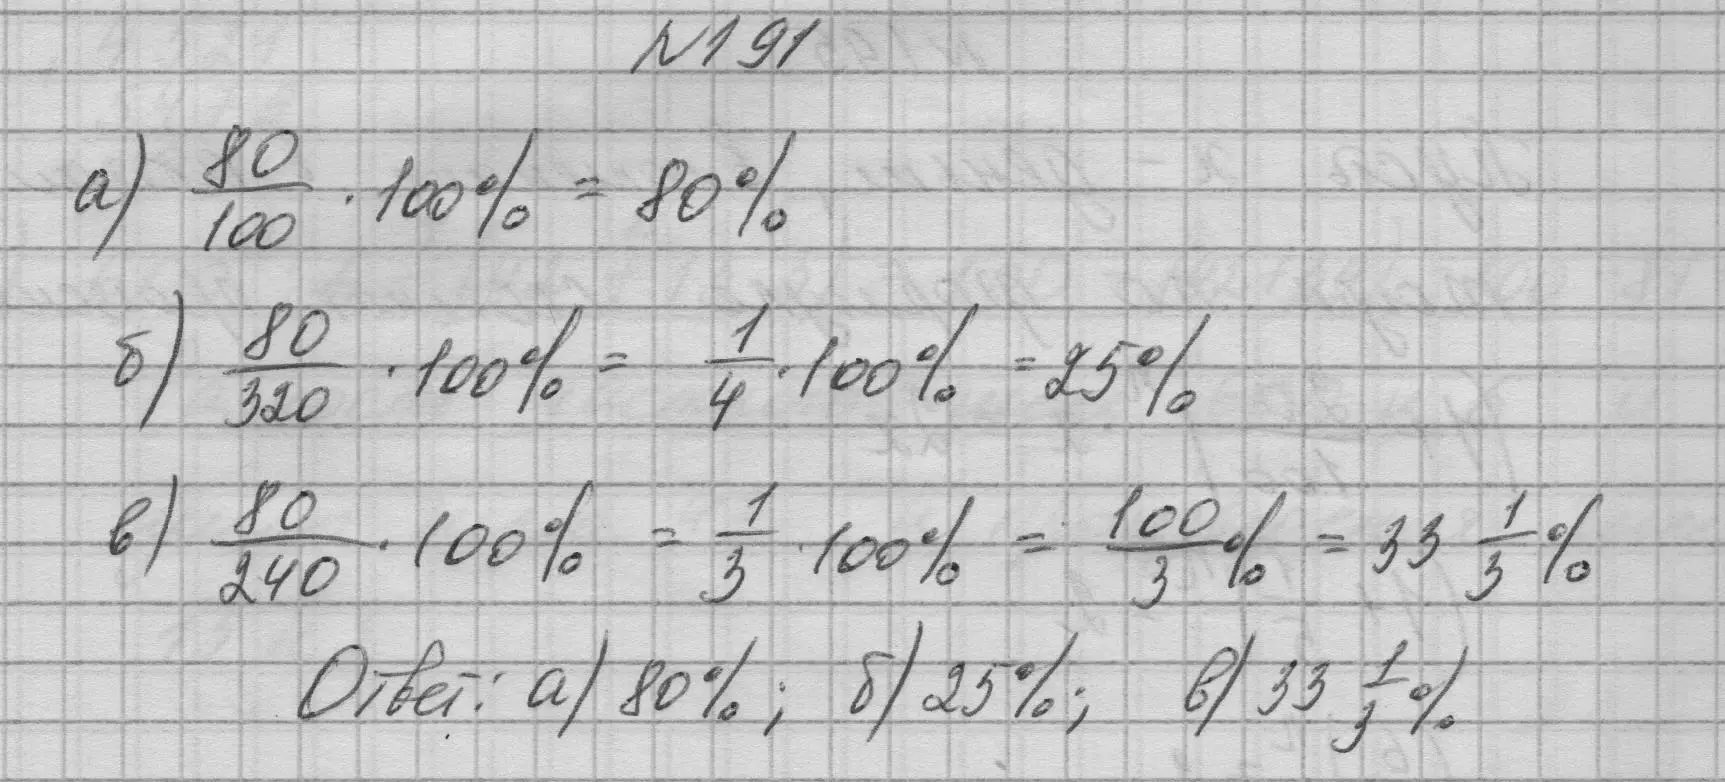 №191
а) 80/100 · 100% = 80%
б) 80/320 · 100% = 1/4 · 100% = 25%
в) 80/240 · 100% = 1/3 · 100% = 100/3 % = 33 1/3 %
Ответ: а) 80%; б) 25%; в) 33 1/3 %